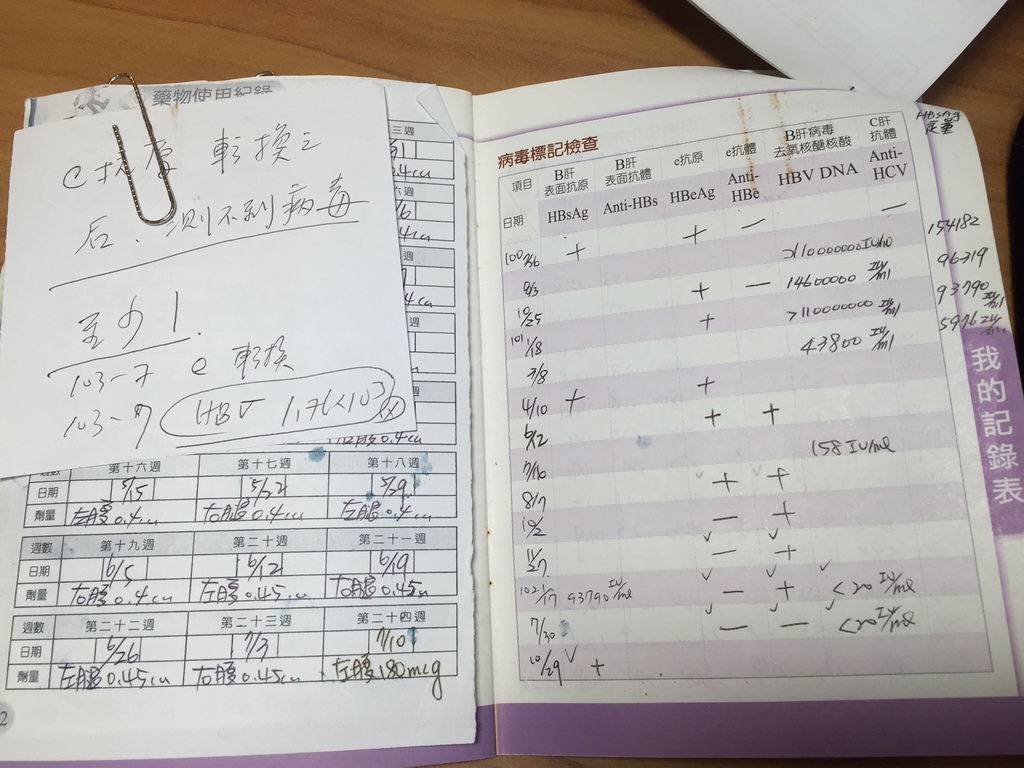 藥物使用紀錄
e抗原 轉換之
后、測不到病毒
至少1.
103-7 e 轉換
103-7 HBV 1.76×10³
三週
0.4cu
週數 第十六週 第十七週 第十八週
日期 5/15 5/22 5/29
劑量 左腿0.4cu 右腿0.4cu 左腿0.4cu
週數 第十九週 第二十週 第二十一週
日期 6/5 6/12 6/19
劑量 右腰0.4cu 左腰0.45cu 右腰0.45cu
週數 第二十二週 第二十三週 第二十四週
日期 6/26 7/3 7/10
劑量 左腿0.45cu 右腰0.45cu 左腰180mcg
2
病毒標記檢查
HBsAg 定量
項目 B肝表面抗原 B肝表面抗體 e抗原 e抗體 B肝病毒去氧核醣核酸 C肝抗體
日期 HBsAg Anti-HBs HBeAg Anti-HBe HBV DNA Anti-HCV
+ + — >110000000 IU/ml — 154182
+ — 14600000 IU/ml 96319
10/25 + >110000000 IU/ml 93790 IU/ml
101 1/18 43800 IU/ml 5976 IU/ml
3/8
4/10 + +
6/2 + +
7/16 158 IU/ml
8/7 + +
10/2 — +
11/27 — +
102 1/17 93790 IU/ml — + <20 IU/ml
7/30 — — <20 IU/ml
10/29 +
我的記錄表